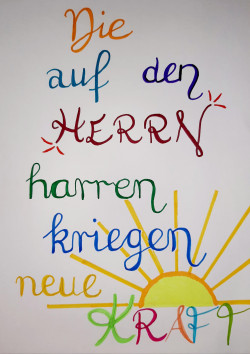 Die
auf den
HERRN
harren
kriegen
neue
KRAFT